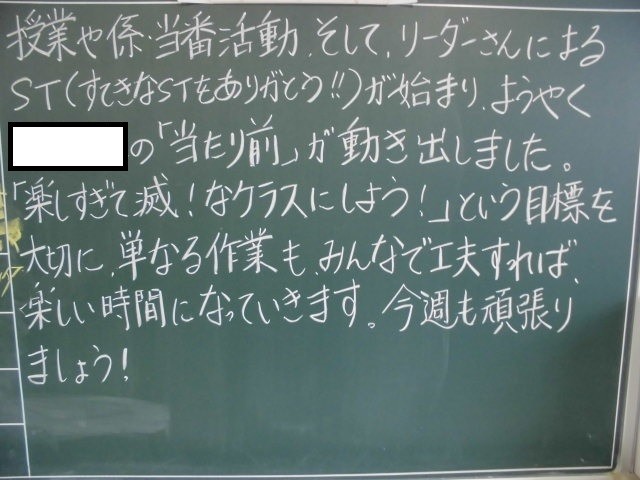 授業や係・当番活動、そして、リーダーさんによる
ST(すてきなSTをありがとう!!)が始まり、ようやく
の「当たり前」が動き出しました。
「楽しすぎて滅!なクラスにしよう!」という目標を
大切に、単なる作業も、みんなで工夫すれば、
楽しい時間になっていきます。今週も頑張り
ましょう!